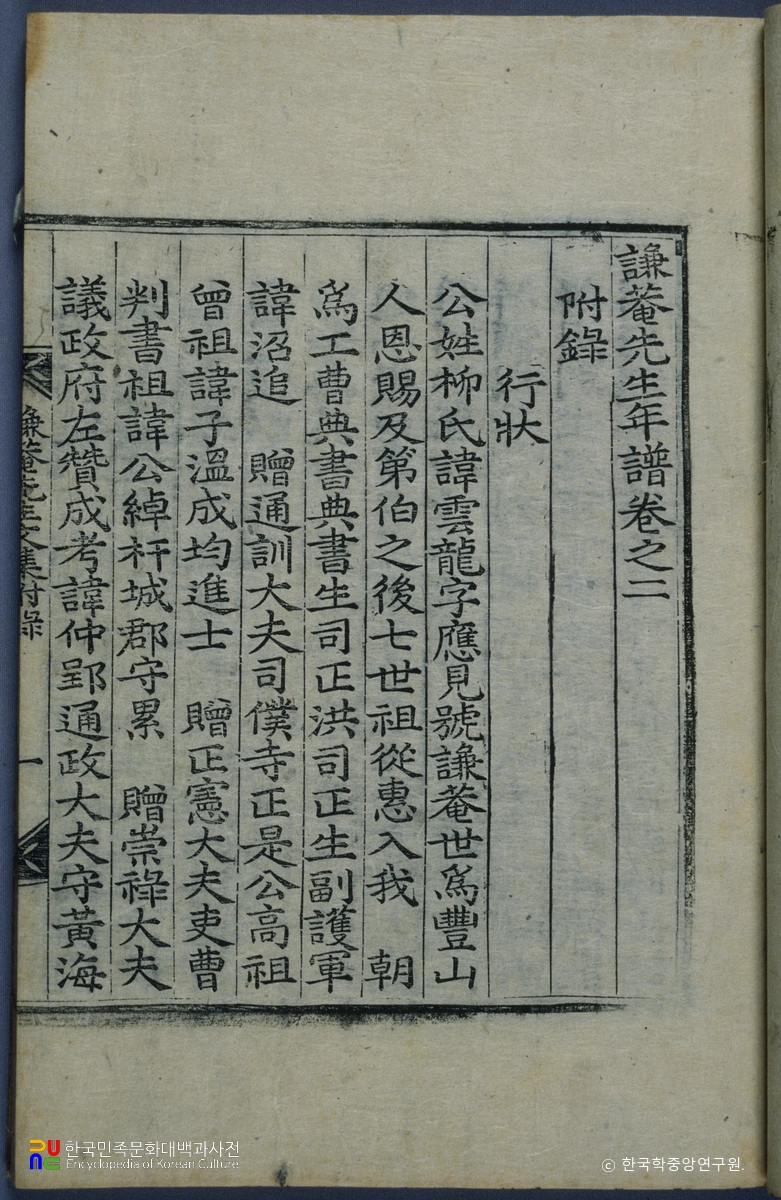 謙菴先生年譜卷之二
附錄
行狀
公姓柳氏諱雲龍字應見號謙菴世爲豐山
人恩賜及第伯之後七世祖從惠入我 朝
爲工曹典書典書生司正洪司正生副護軍
諱沼追 贈通訓大夫司僕寺正是公高祖
曾祖諱子溫成均進士 贈正憲大夫吏曹
判書祖諱公綽杆城郡守累 贈崇祿大夫
議政府左贊成考諱仲郢通政大夫守黃海
謙菴先生文集附錄 一
한국민족문화대백과사전
Encyclopedia of Korean Culture
ⓒ 한국학중앙연구원.